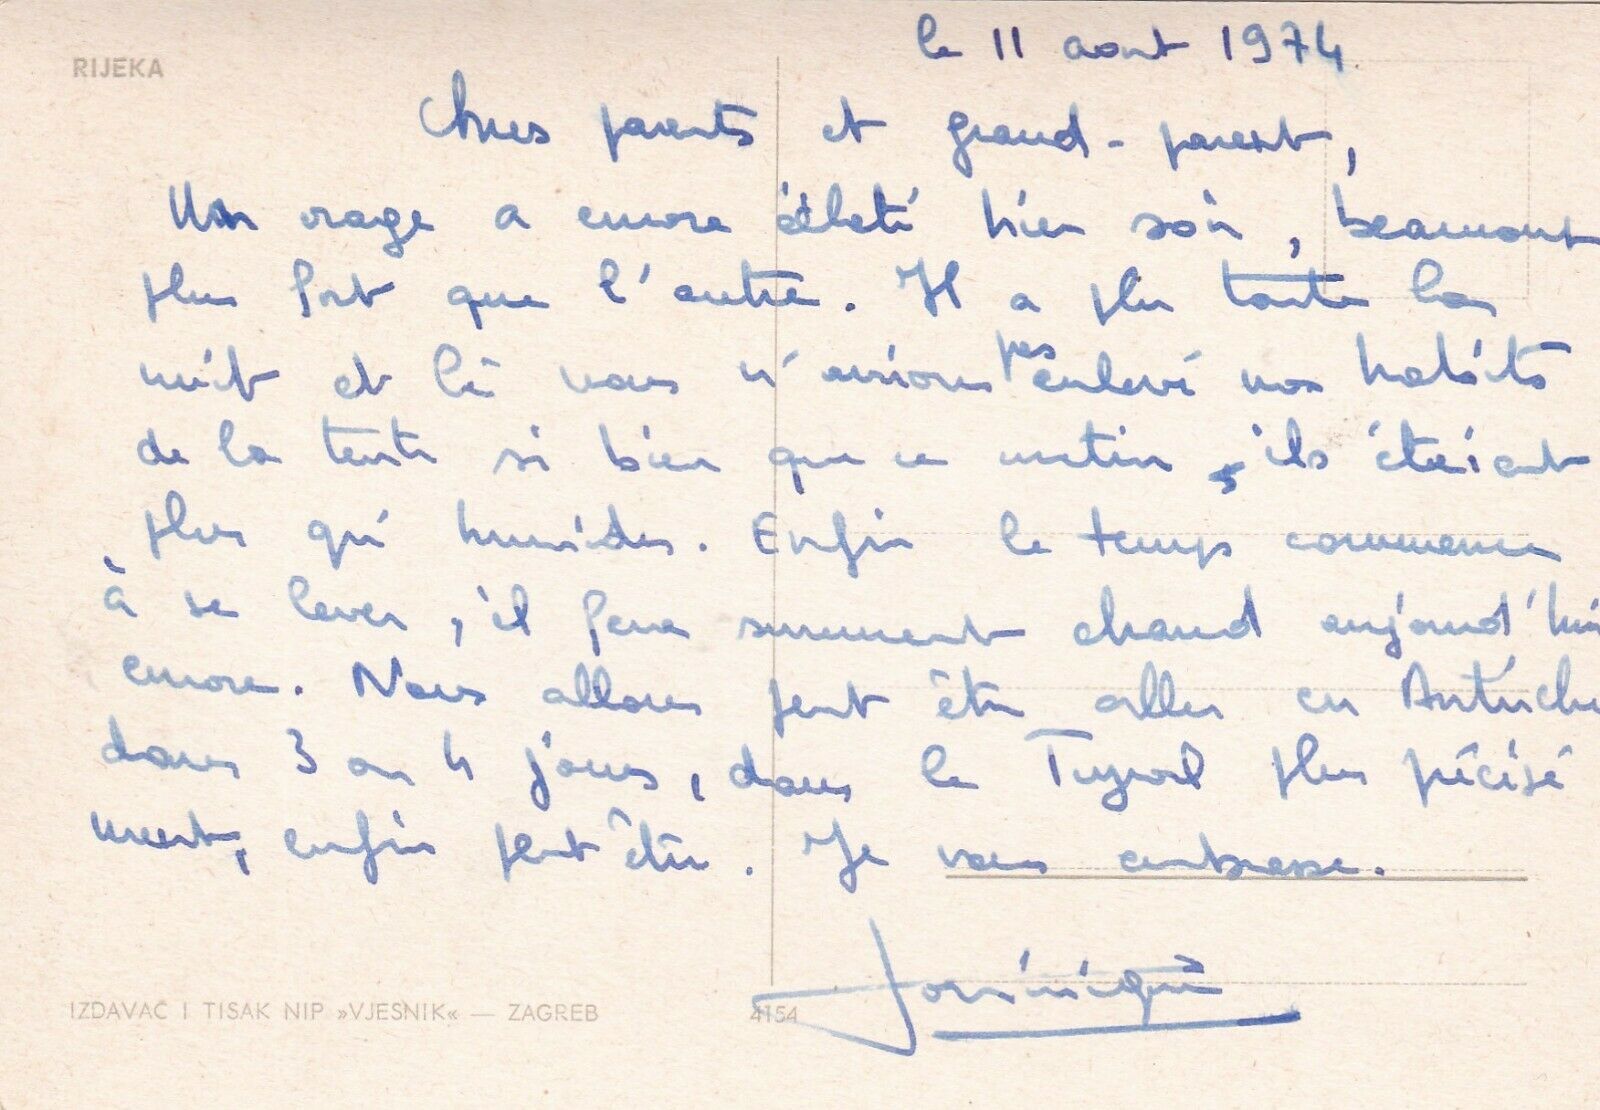 le 11 aout 1974
RIJEKA
Chers parents et grand-parent,
Un orage a encore éclaté hier soir, beaucoup
plus fort que l'autre. Il a plu toute la
nuit et là nous n'avions pas enlevé nos habits
de la tente si bien que ce matin, ils étaient
plus qu' humides. Enfin le temps commence
à se lever, il fera surement chaud aujourd'hui
encore. Nous allons peut être aller en Autriche
dans 3 ou 4 jours, dans le Tyrol plus précisé
ment, enfin peut être. Je vous embrasse.
Dominique
IZDAVAČ I TISAK NIP »VJESNIK« — ZAGREB 4154